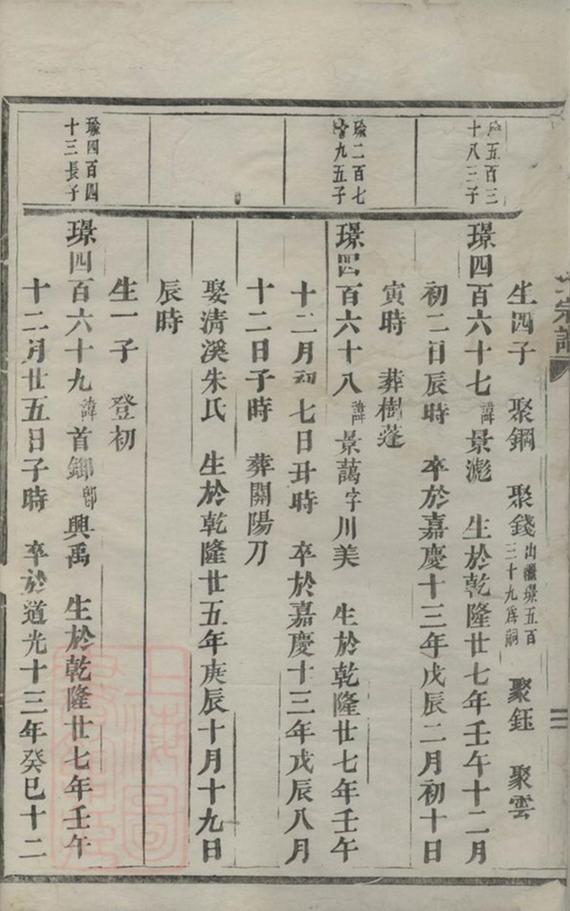 宗譜
生四子 聚鋼 聚錢出繼璟五百三十九為嗣 聚鈺 聚雲
五百三十八三子
璟四百六十七諱景滮 生於乾隆廿七年壬午十二月
初二日辰時 卒於嘉慶十三年戊辰二月初十日
寅時 葬樹蓬
瑜二百七九五子
璟四百六十八諱景藹字川美 生於乾隆廿七年壬午
十二月初七日丑時 卒於嘉慶十三年戊辰八月
十二日子時 葬開陽刀
娶清溪朱氏 生於乾隆廿五年庚辰十月十九日
辰時
生一子 登初
瑜四百四十三長子
璟四百六十九諱首鄉即興禹 生於乾隆廿七年壬午
十二月廿五日子時 卒於道光十三年癸巳十二
上海圖